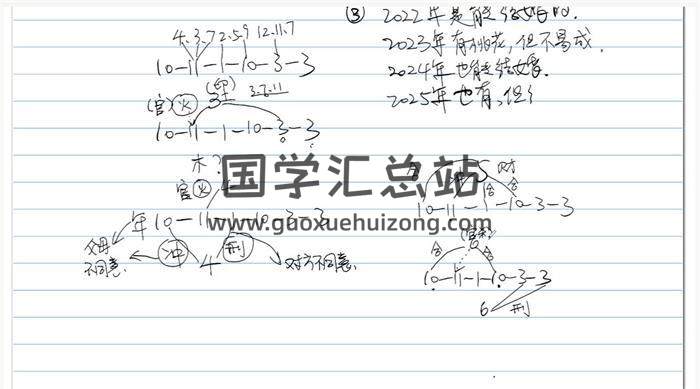 4.3.7 2.5.9 12.11.7
10-11-1-10-3-3
③ 2022年是能结婚的.
2023年有桃花,但不易成.
2024年也能结婚.
2025年也有,但
(官)火 (印) 3.6.11
10-11-1-10-3-3
木?
官火
年10-11-1-10-3-3
父母
不同意.
冲 4 刑 对方不同意.
国学汇总站
www.guoxuehuizong.com
合 5 对
合 合
10-11-1-10-3-3
合 合
10-11-1-10-3-3
6 刑